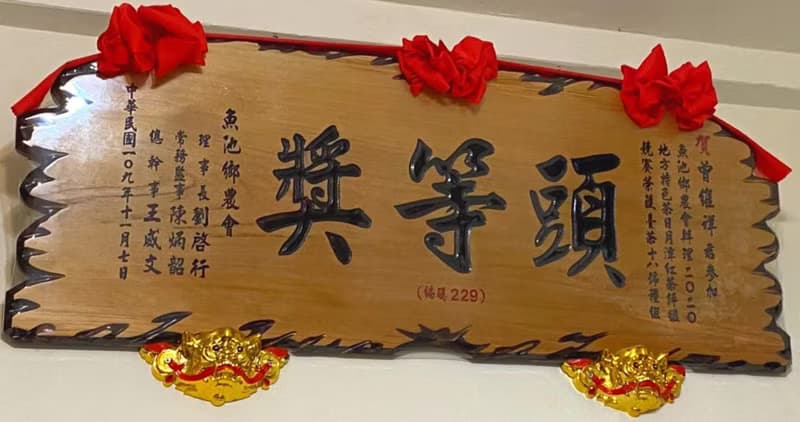 賀 曾繼祥 君參加
魚池鄉農會辦理二〇二〇
地方特色茶日月潭紅茶評鑑
競賽榮獲臺茶十八號禮組
頭等獎
(編號229)
魚池鄉農會
理事長劉啓行
常務監事陳炳韶
總幹事王威文
中華民國一〇九年十一月七日